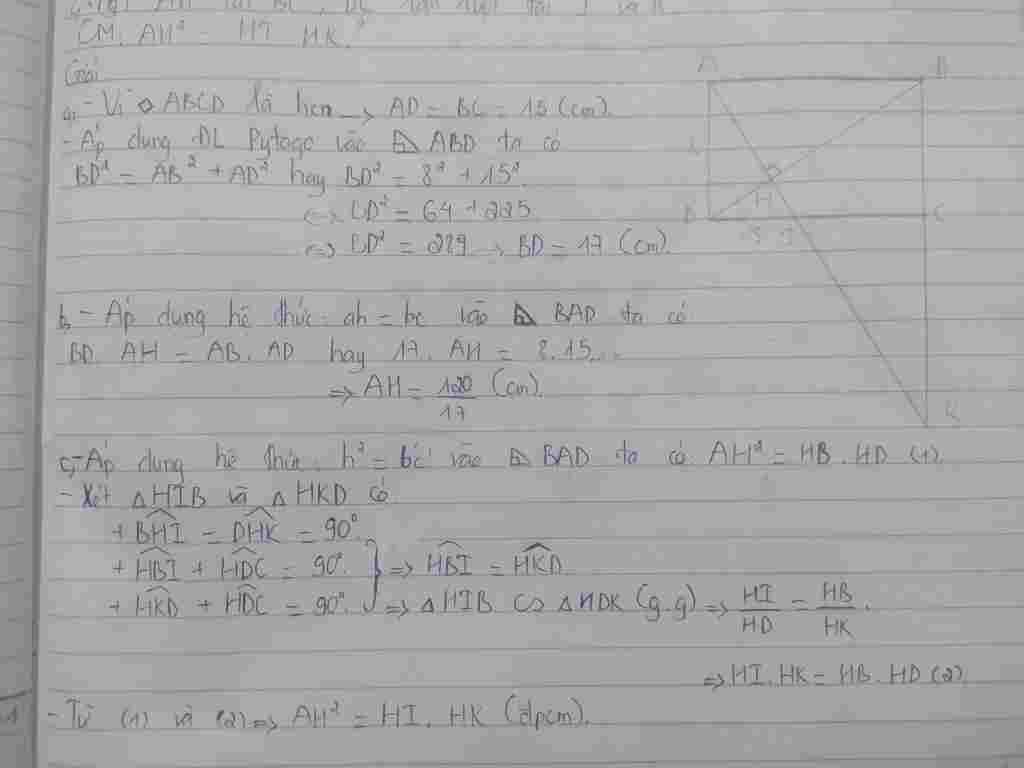 CM. AH² = HI HK.
Giải
a, - Vì ◇ ABCD là hcn → AD = BC = 15 (cm).
- Áp dụng ĐL Pytago vào ⊿ ABD ta có
BD² = AB² + AD² hay BD² = 8² + 15²
<-> BD² = 64 + 225
<=> BD² = 289 → BD = 17 (cm).
b, - Áp dụng hệ thức: ah = bc vào ⊿ BAD ta có
BD. AH = AB. AD hay 17. AH = 8.15...
=> AH = 120/17 (cm).
c, - Áp dụng hệ thức. h² = b'c' vào ⊿ BAD ta có AH² = HB. HD (1)
- Xét △HIB và △HKD có
+ BHI = DHK = 90°.
+ HBI + HDC = 90°. => HBI = HKD
+ HKD + HDC = 90°. => △HIB ∽ △HDK (g.g) => HI/HD = HB/HK.
=> HI. HK = HB. HD (2)
- Từ (1) và (2) => AH² = HI. HK (đpcm).
A
B
H
C
K